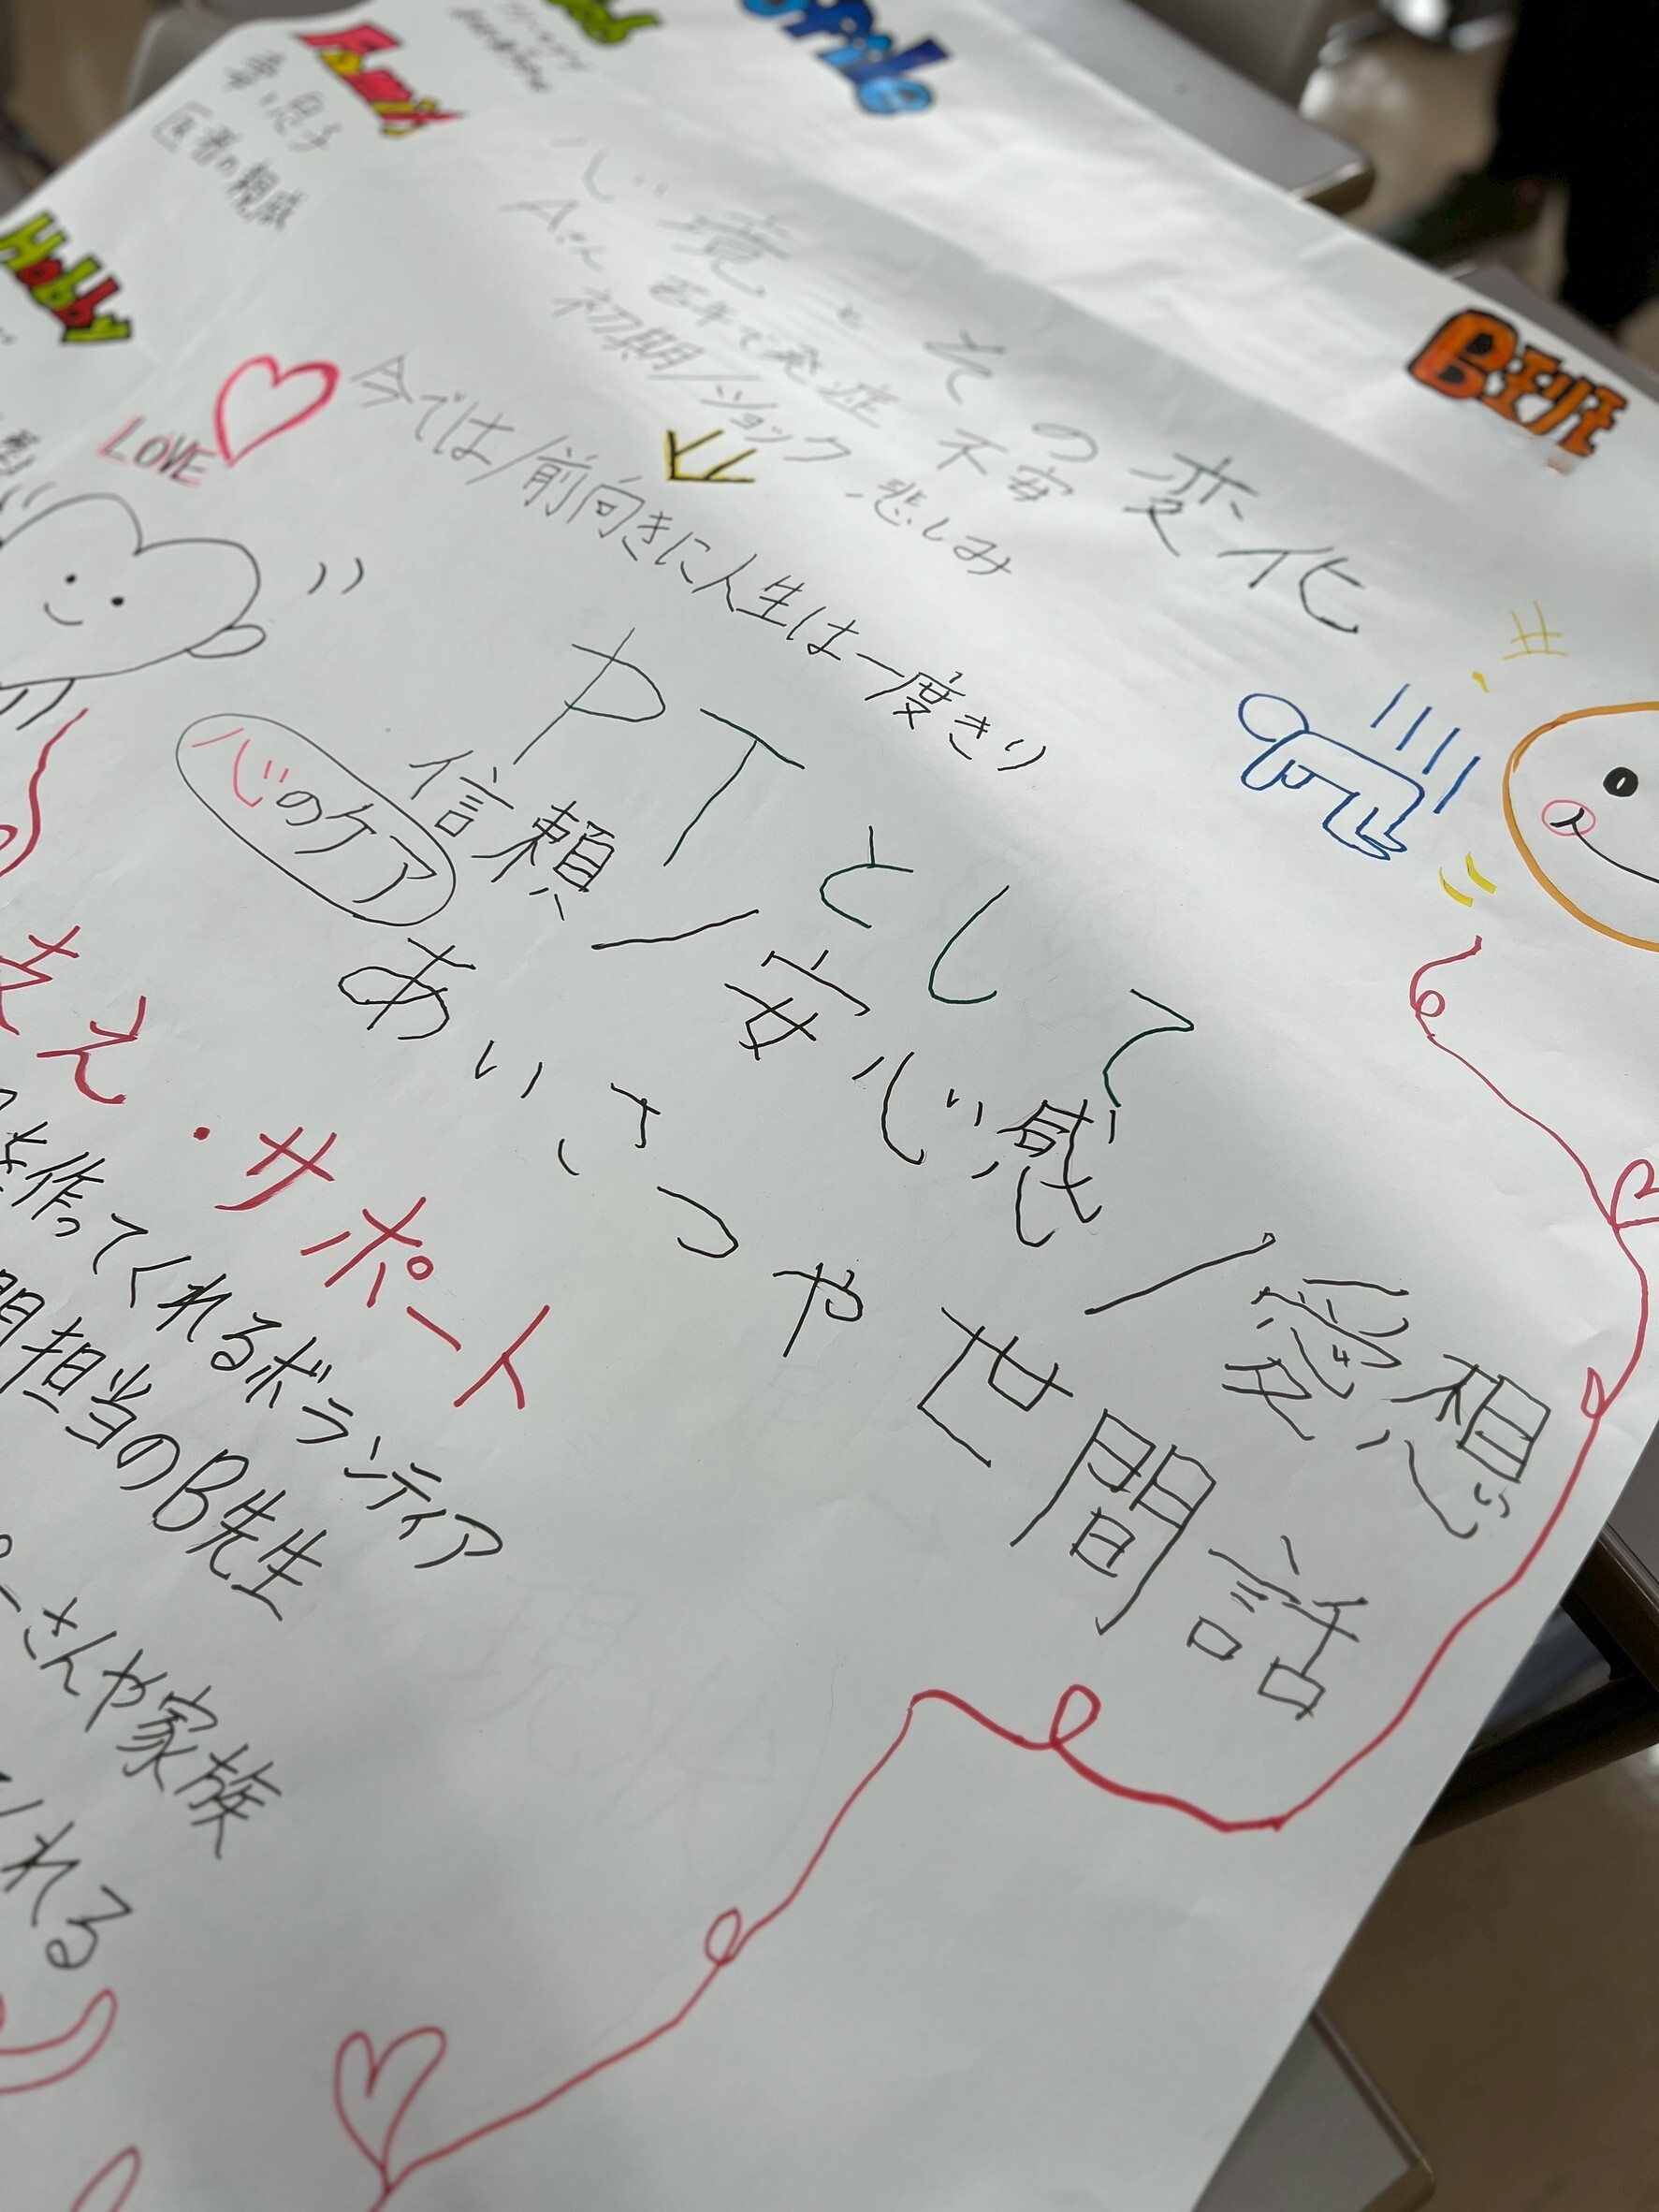 Family
妻と息子
医者の親戚
Hobby
心境とその変化
Aさん 若年で発症 不安
初期/ショック、悲しみ
今では/前向きに人生は一度きり
LOVE
PTとして
心のケア
信頼/安心感/愛想
あいさつや世間話
支え・サポート
を作ってくれるボランティア
担当のB先生
さんや家族
くれる